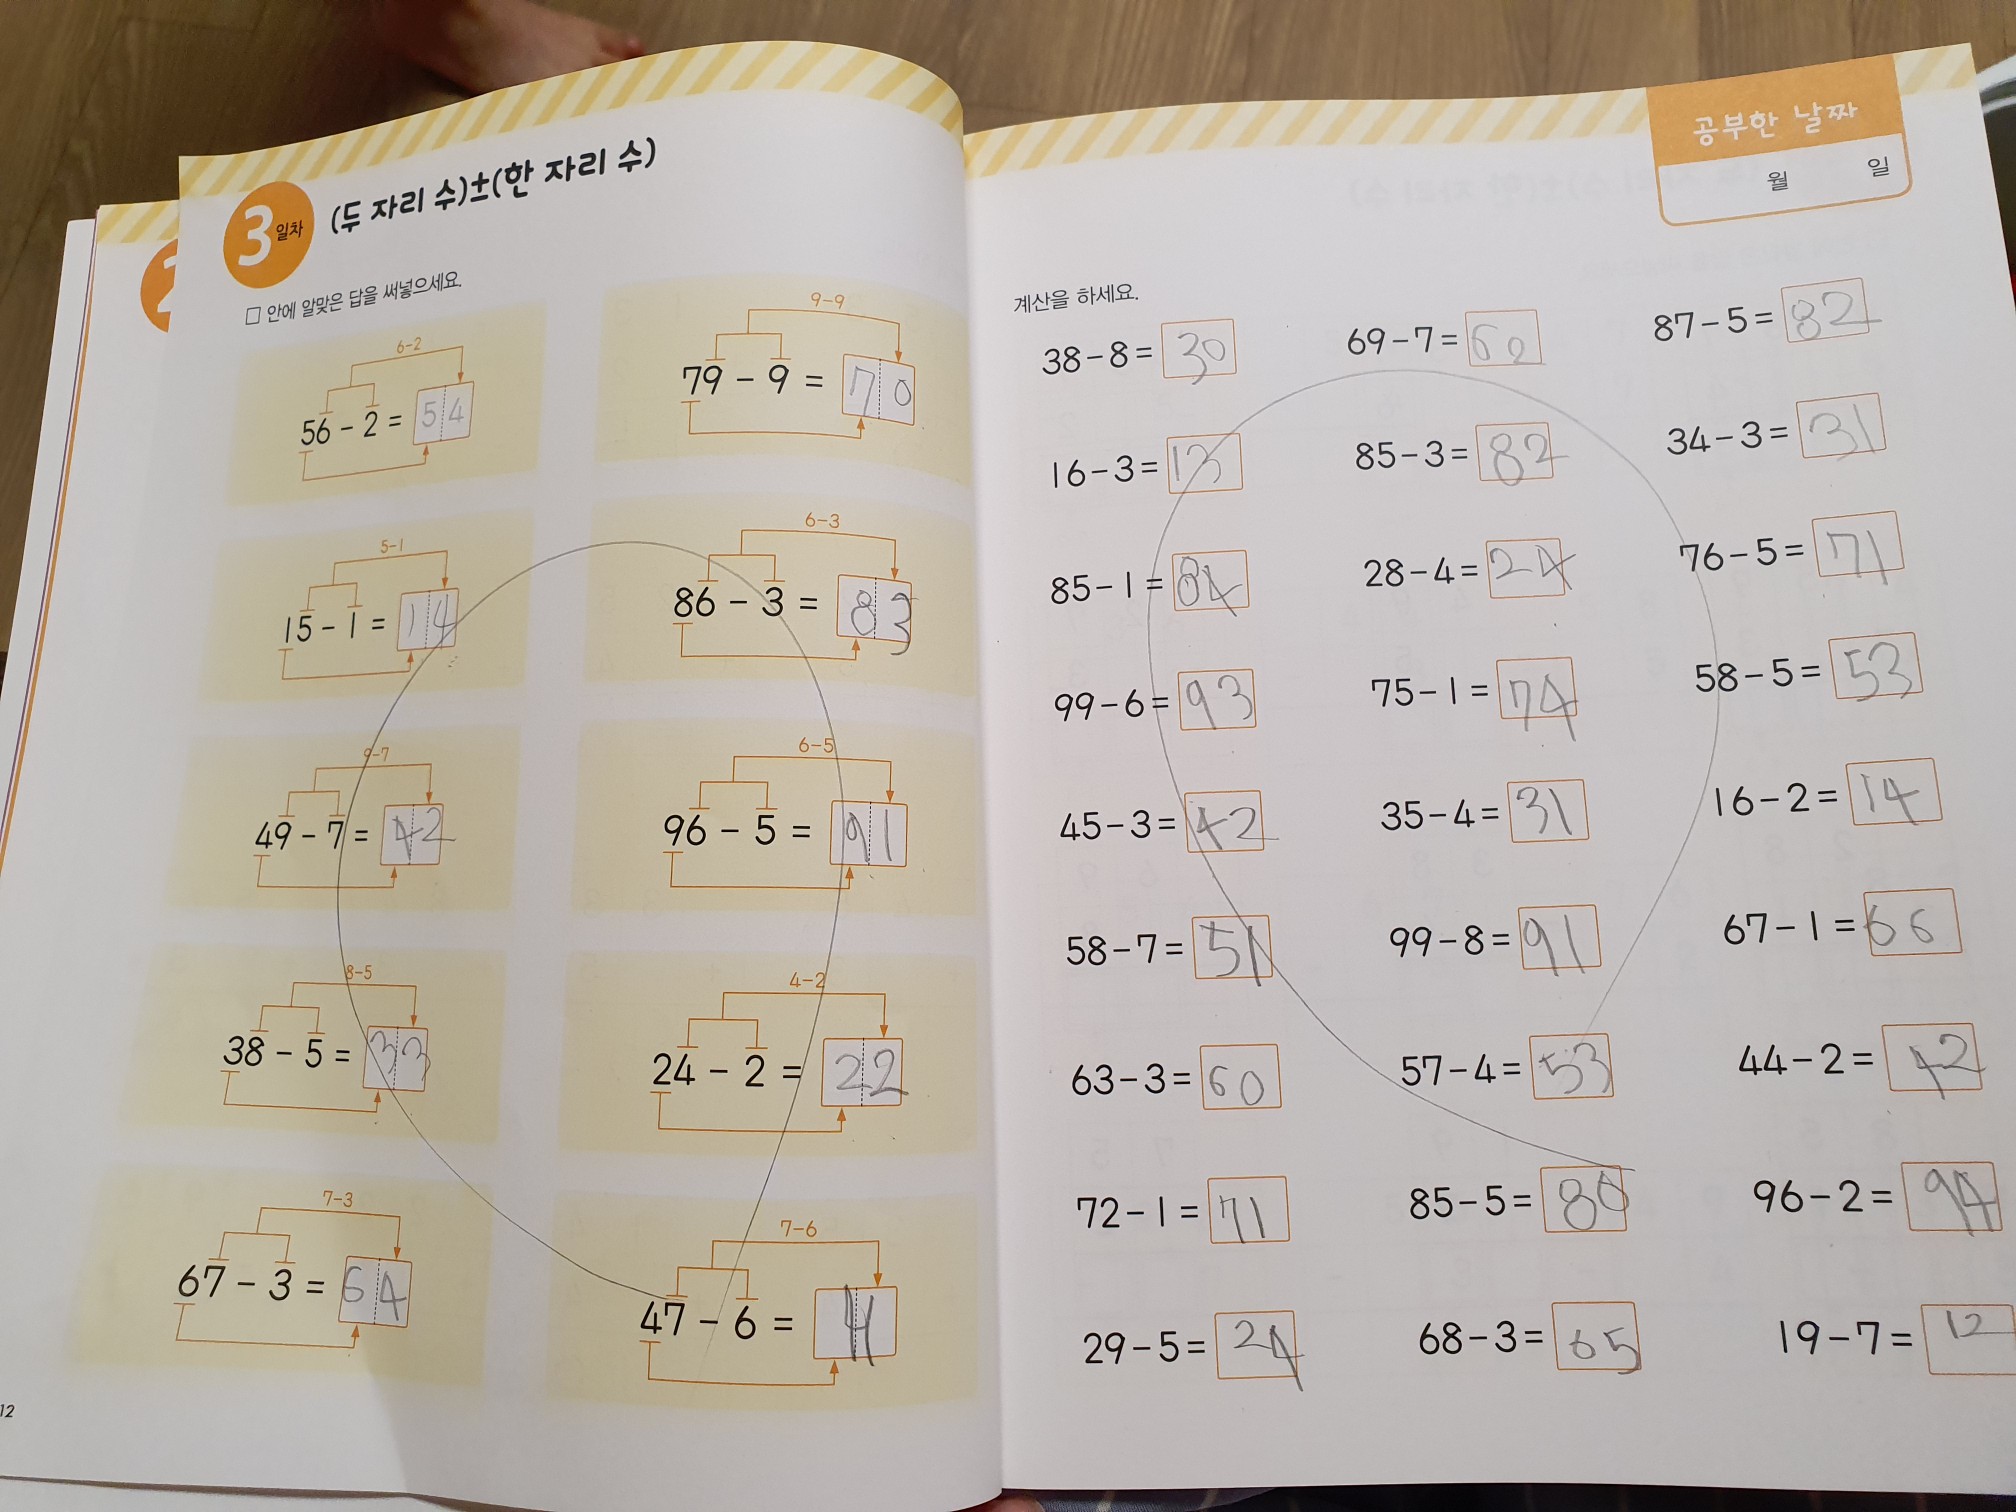 3일차 (두 자리 수)±(한 자리 수)
□ 안에 알맞은 답을 써넣으세요.
6-2
56 - 2 = 54
9-9
79 - 9 = 70
5-1
15 - 1 = 14
6-3
86 - 3 = 83
9-7
49 - 7 = 42
6-5
96 - 5 = 91
8-5
38 - 5 = 33
4-2
24 - 2 = 22
7-3
67 - 3 = 64
7-6
47 - 6 = 41
12
공부한 날짜
월 일
계산을 하세요.
38-8= 30 69-7= 62 87-5= 82
16-3= 13 85-3= 82 34-3= 31
85-1= 84 28-4= 24 76-5= 71
99-6= 93 75-1= 74 58-5= 53
45-3= 42 35-4= 31 16-2= 14
58-7= 51 99-8= 91 67-1= 66
63-3= 60 57-4= 53 44-2= 42
72-1= 71 85-5= 80 96-2= 94
29-5= 24 68-3= 65 19-7= 12